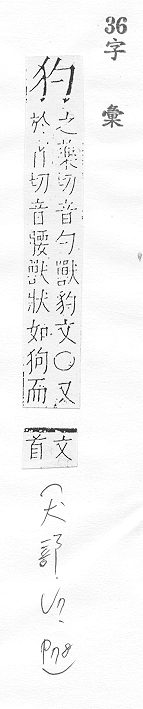 36
字彙
犳
之藥切音勺獸豹文〇又
於肖切音腰獸狀如狗而
文首
(犬部.
P78)